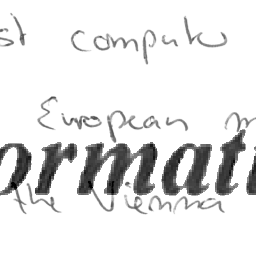 st compute
European m
ormati
the Vienna